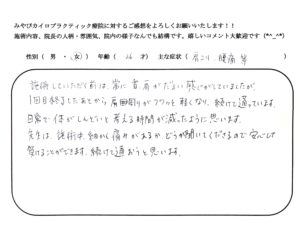 みやびカイロプラクティック療院に対するご感想をよろしくお願いいたします！！
施術内容、院長の人柄・雰囲気、院内の様子なんでも結構です。嬉しいコメント大歓迎です（*^_^*）
性別（ 男 ・ 女 ） 年齢（ 26 才） 主な症状（ 肩こり 腰痛 等
施術していただく前は、常に首、肩がだるい感じがしていましたが、
1回目終了したあとから、肩回りがフワッと軽くなり、続けて通っています。
日常で体がしんどいと考える時間が減ったように思います。
先生は、施術中、細かく痛みがあるか、どうか聞いてくださるので安心して
受けることができます。続けて通おうと思います。